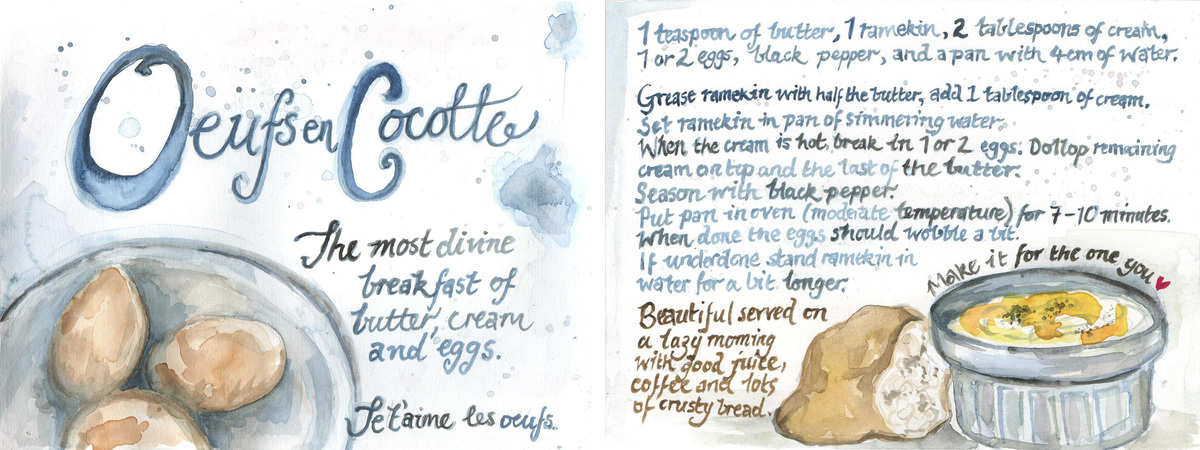 Oeufs en Cocotte
The most divine
breakfast of
butter, cream
and eggs.
Je t'aime les oeufs..
1 teaspoon of butter, 1 ramekin, 2 tablespoons of cream,
1 or 2 eggs, black pepper, and a pan with 4cm of water.
Grease ramekin with half the butter, add 1 tablespoon of cream.
Set ramekin in pan of simmering water.
When the cream is hot, break in 1 or 2 eggs. Dollop remaining
cream on top and the last of the butter.
Season with black pepper.
Put pan in oven (moderate temperature) for 7-10 minutes.
When done the eggs should wobble a bit.
If underdone stand ramekin in
water for a bit longer.
Make it for the one you
Beautiful served on
a lazy morning
with good juice,
coffee and lots
of crusty bread.